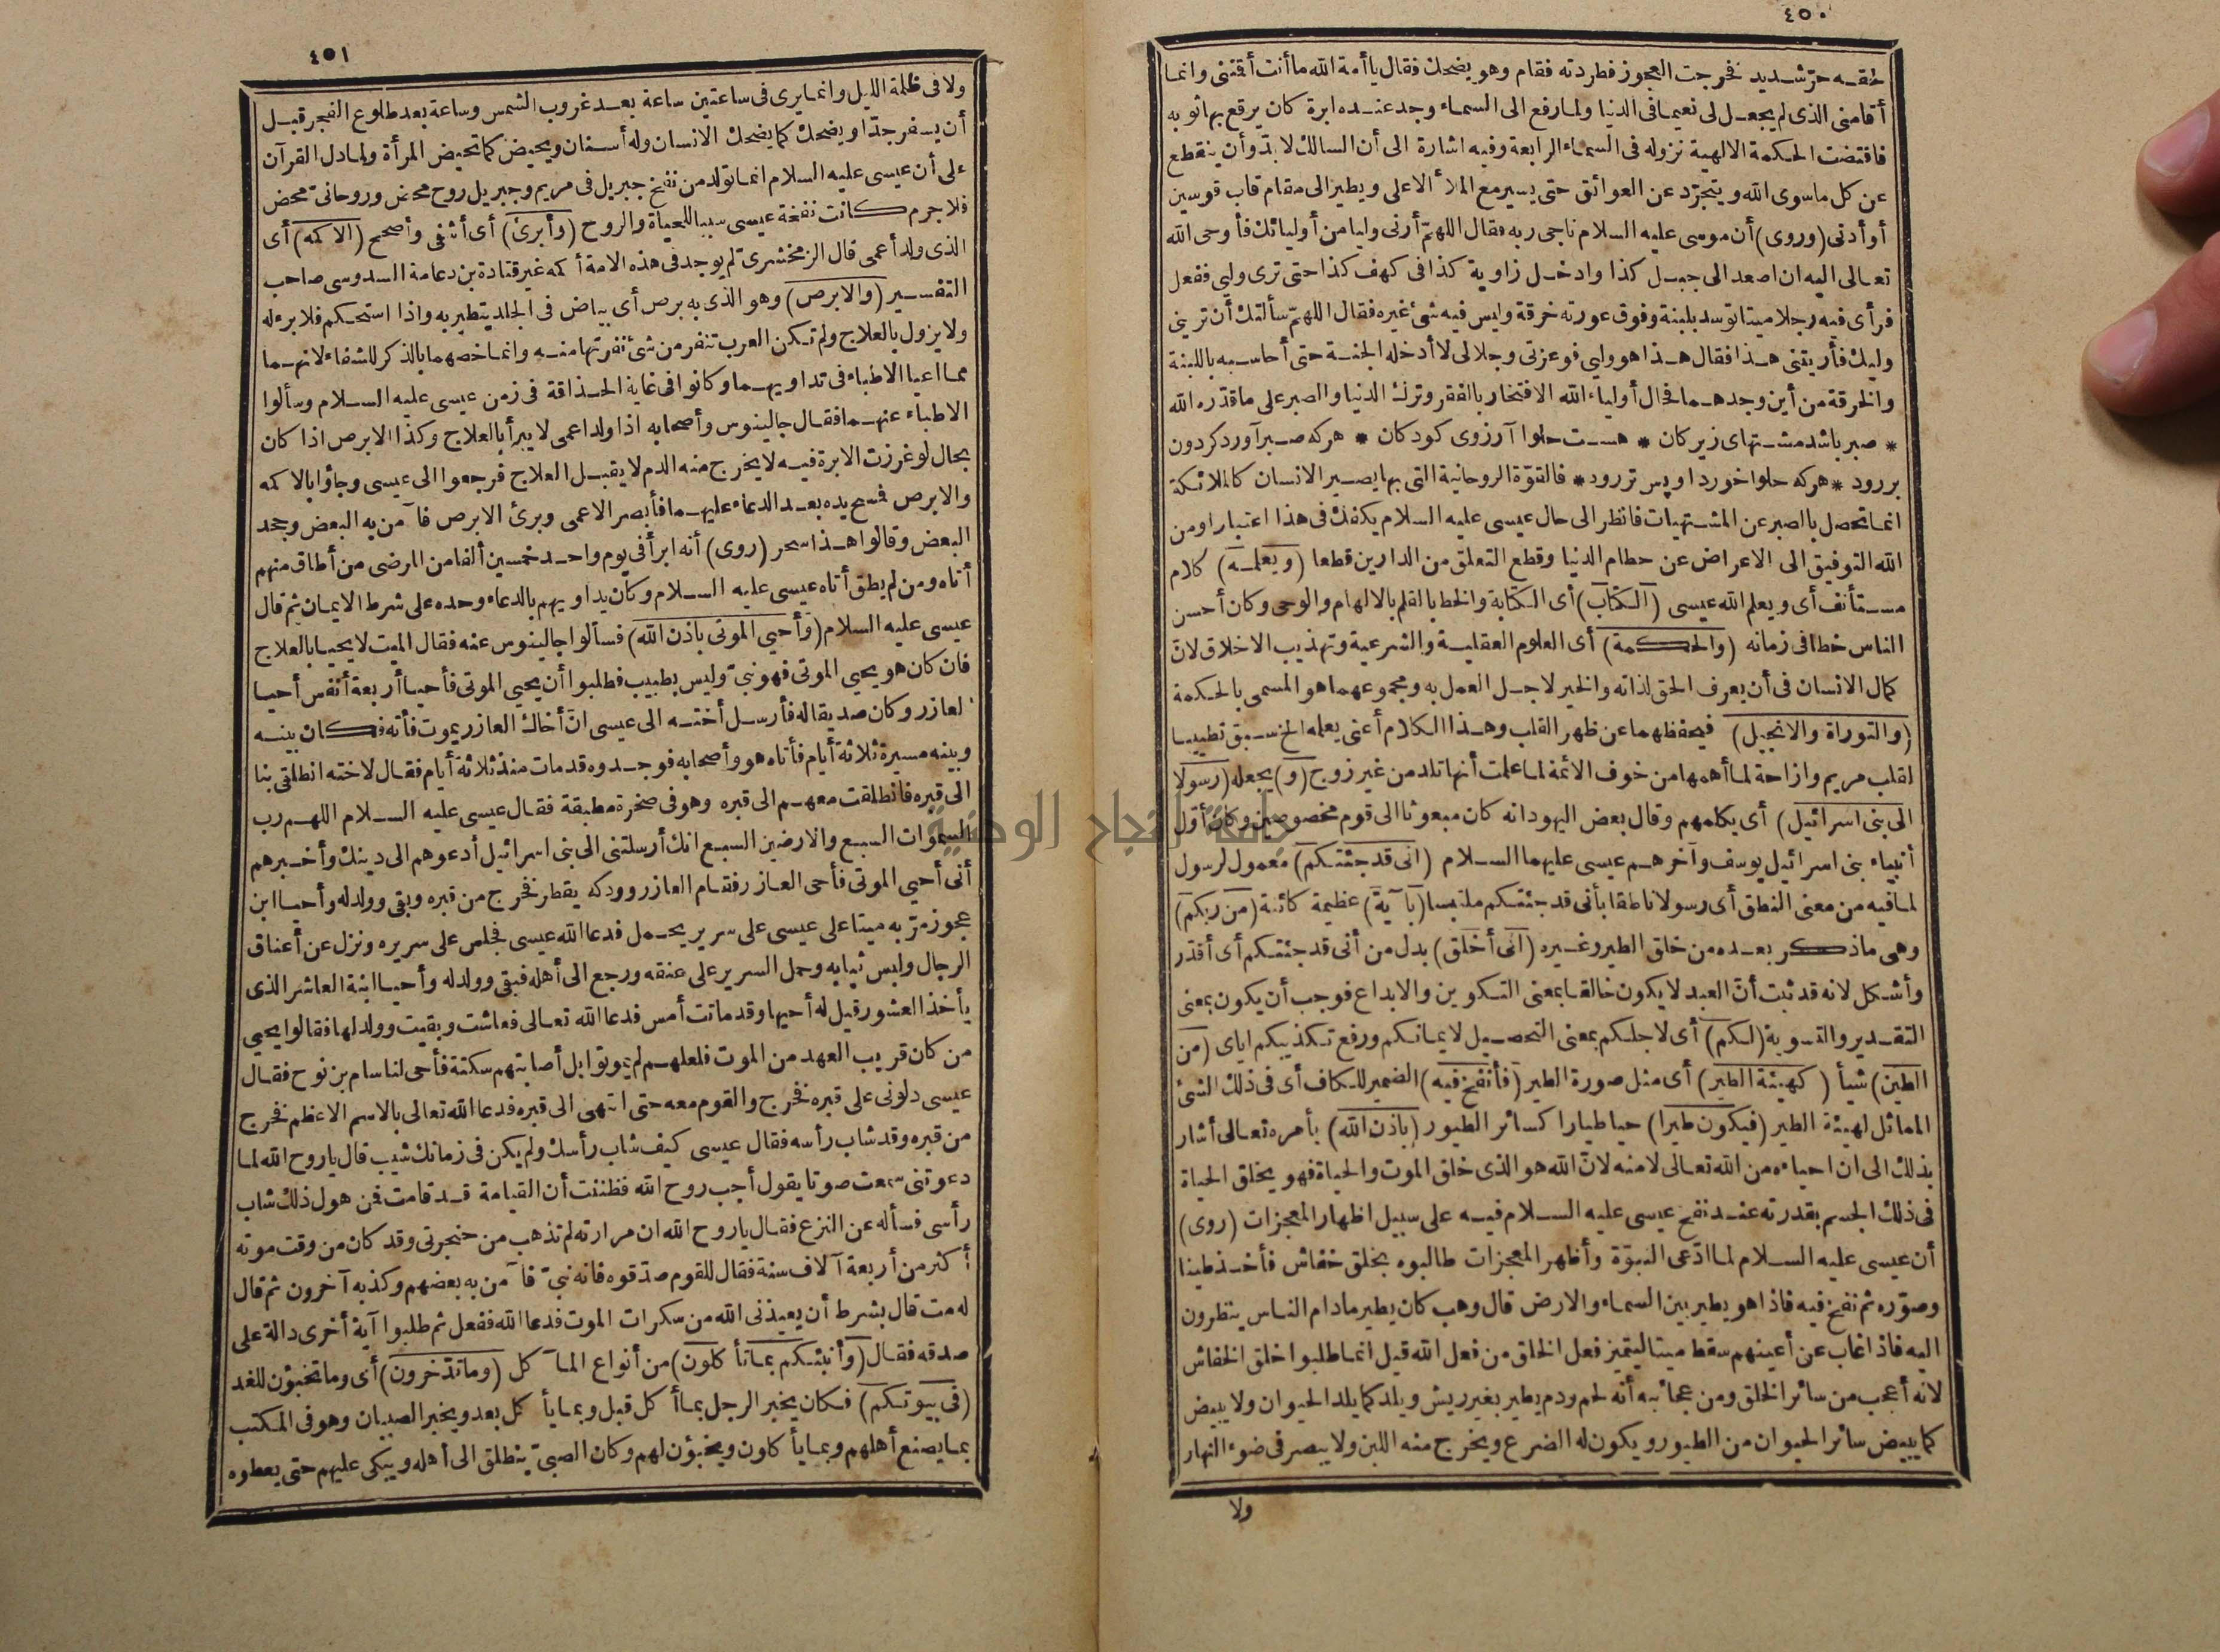 ٤٥٠
خلقـه حرّ شـديد فخرجت العجوز فطردته فقام وهو يضحك فقال يا أمة الله ما أنت أقتنى وانما
أقامنى الذى لم يجعـل لى نعيما فى الدنيا ولما رفع الى السماء وجد عنـده ابرة كان يرقع بها ثوبه
فاقتضت الحكمة الالهية نزوله فى السماء الرابعة وفيه اشارة الى أن السالك لا بدّ وأن ينقطع
عن كل ما سوى الله ويتجرّد عن العوائق حتى يسير مع الملأ الاعلى ويطير الى مقام قاب قوسين
أو أدنى (وروى) أن موسى عليه السلام ناجى ربه فقال اللهمّ أرنى وليا من أوليائك فأوحى الله
تعـالى اليه ان اصعد الى جبـل كذا وادخـل زاوية كذا فى كهف كذا حتى ترى وليى ففعل
فرأى فيه رجلا ميتا توسد بلبنة وفوق عورته خرقة وليس فيه شئ غيره فقال اللهمّ سألتك أن ترينى
وليك فأريتنى هـذا فقال هـذا هو وليى فوعزتى وجلالى لا أدخله الجنـة حتى أحاسـبه باللبنة
والخرقة من أين وجدهـما فحال أولياء الله الافتخار بالفقر وترك الدنيا والصبر على ما قدّره الله
* صبر باشد مشـتهاى زيركان * هسـت حلوا آرزوى كودكان * هركه صـبر آورد كردون
بررود * هركه حلوا خورد او پس تر رود * فالقوّة الروحانية التى بها يصـير الانسان كالملائكة
انما تحصل بالصبر عن المشـتهيات فانظر الى حال عيسى عليه السلام يكفك فى هذا اعتبارا ومن
الله التوفيق الى الاعراض عن حطام الدنيا وقطع التعلق من الدارين قطعا (ويعلمـه) كلام
مسـتأنف أى ويعلم الله عيسى (الكتاب) أى الكتابة والخط بالقلم بالالهام والوحى وكان أحسن
الناس خطا فى زمانه (والحكمة) أى العلوم العقليـة والشرعية وتهذيب الاخلاق لانّ
كمال الانسان فى أن يعرف الحق لذاته والخير لاجـل العمل به ومجموعهما هو المسمى بالحكمة
(والتوراة والانجيل) فيحفظهما عن ظهر القلب وهـذا الكلام أعنى يعلمه الخ سـبق تطييبـا
لقلب مريم وازاحة لما أهمها من خوف الائمة لما علمت أنها تلد من غير زوج (و) يجعله (رسولا
الى بنى اسرائيل) أى يكلمهم وقال بعض اليهود انه كان مبعوثا الى قوم مخصوصين وكان أوّل
أنبياء بنى اسرائيل يوسف وآخرهـم عيسى عليهما السـلام (انى قد جئتكم) معمول لرسول
لما فيه من معنى النطق أى رسولا ناطقا بأنى قد جئتكم ملتبسا (بآية) عظيمة كائنة (من ربكم)
وهى ما ذكـر بعـده من خلق الطير وغـيره (أنى أخلق) بدل من أنى قد جئتكم أى أقدر
وأشكل لانه قد ثبت أنّ العبد لا يكون خالقا بمعنى التكوين والابداع فوجب أن يكون بمعنى
التقـدير والتسوية (لكم) أى لاجلكم بمعنى التحصـيل لايمانكم ورفع تكذيبكم اياى (من
الطين) شيأ (كهيئة الطير) أى مثل صورة الطير (فأنفخ فيه) الضمير للكاف أى فى ذلك الشئ
المماثل لهيئة الطير (فيكون طيرا) حيا طيارا كسائر الطيور (باذن الله) بأمره تعـالى أشار
بذلك الى ان احياءه من الله تعـالى لا منه لانّ الله هو الذى خلق الموت والحياة فهو يخلق الحياة
فى ذلك الجسم بقدرته عنـد نفخ عيسى عليه السـلام فيـه على سبيل اظهار المعجزات (روى)
أن عيسى عليه السـلام لما ادّعى النبوّة وأظهر المعجزات طالبوه بخلق خفاش فأخـذ طينا
وصوّره ثم نفخ فيه فاذا هو يطير بين السماء والارض قال وهب كان يطير مادام النـاس ينظرون
اليه فاذا غاب عن أعينهم سقط ميتا ليتميز فعل الخلق من فعل الله قيل انمـا طلبوا خلق الخفاش
لانه أعجب من سائر الخلق ومن عجائبه أنه لحم ودم يطير بغير ريش ويلد كما يلد الحيوان ولا يبيض
كما يبيض سائر الحيوان من الطيور ويكون له الضرع ويخرج منه اللبن ولا يبصر فى ضوء النهار
ولا
٤٥١
ولا فى ظلمة الليل وانما يرى فى ساعتين ساعة بعـد غروب الشمس وساعة بعد طلوع الفجر قبـل
أن يسفر جدّا ويضحك كما يضحك الانسان وله أسـنان ويحيض كما تحيض المرأة ولما دل القرآن
على أن عيسى عليه السلام انما تولد من نفخ جبريل فى مريم وجبريل روح محض وروحانىّ محض
فلا جرم كانت نفخة عيسى سببا للحياة والروح (وأبرئ) أى أشفى وأصحح (الاكمه) أى
الذى ولد أعمى قال الزمخشرى لم يوجد فى هذه الامة أكمه غير قتادة بن دعامة السدوسى صاحب
التفسـير (والابرص) وهو الذى به برص أى بياض فى الجلد يتطير به واذا استحكم فلا برء له
ولا يزول بالعلاج ولم تكن العرب تنفر من شئ نفرتها منـه وانما خصهما بالذكر للشفاء لانهـما
مما اعيا الاطباء فى تداويهـما وكانوا فى غاية الحـذاقة فى زمن عيسى عليه السـلام وسألوا
الاطباء عنهـما فقـال جالينوس وأصحابه اذا ولد اعمى لا يبرأ بالعلاج وكذا الابرص اذا كان
بحال لو غرزت الابرة فيـه لا يخرج منه الدم لا يقبـل العلاج فرجعوا الى عيسى وجاؤا بالاكمه
والابرص فمسح يده بعـد الدعاء عليهـما فأبصر الاعمى وبرئ الابرص فآمن به البعض وجحد
البعض وقالوا هـذا سحر (روى) أنه ابرأ فى يوم واحـد خمسين ألفا من المرضى من أطاق منهم
أتاه ومن لم يطق أتاه عيسى عليه السـلام وكان يداويهم بالدعاء وحده على شرط الايمـان ثم قال
عيسى عليه السلام (وأحيي الموتى باذن الله) فسألوا جالينوس عنه فقال الميت لا يحيـا بالعلاج
فان كان هو يحيي الموتى فهو نبىّ وليس بطبيب فطلبوا أن يحيي الموتى فأحيـا أربعة أنفس أحيـا
العازر وكان صديقا له فأرسـل أختـه الى عيسى انّ أخاك العازر يموت فأته فكان بينـه
وبينه مسيرة ثلاثة أيام فأتاه هو وأصحابه فوجـدوه قد مات منذ ثلاثة أيام فقـال لاخته انطلقى بنا
الى قبره فانطلقت معهـم الى قبره وهو فى صخرة مطبقة فقـال عيسى عليه السـلام اللهـم رب
السموات السبـع والارضين السبـع انك أرسلتنى الى بنى اسرائيل أدعوهم الى دينك وأخـبرهم
أنى أحيي الموتى فأحى العازر فقـام العازر وودكه يقطر فخرج من قبره وبقى وولد له وأحيـا ابن
عجوز مرّ به ميتا على عيسى على سرير يحمـل فدعا الله عيسى فجلس على سريره ونزل عن أعناق
الرجال ولبس ثيابه وحمل السرير على عنقه ورجع الى أهله فبقى وولد له وأحيـا ابنة العاشر الذى
يأخذ العشور قيل له أحيها وقد ماتت أمس فدعا الله تعـالى فعاشت وبقيت وولد لها فقالوا يحيي
من كان قريب العهد من الموت فلعلهـم لم يموتوا بل أصابتهم سكتة فأحى لنا سام بن نوح فقـال
عيسى دلونى على قبره فخرج والقوم معه حتى انتهى الى قبره فدعا الله تعالى بالاسم الاعظم فخرج
من قبره وقد شاب رأسه فقال عيسى كيف شاب رأسك ولم يكن فى زمانك شيب قال يا روح الله لما
دعوتنى سمعت صوتا يقول أجب روح الله فظننت أن القيامة قـد قامت فمن هول ذلك شاب
رأسى فسأله عن النزع فقـال يا روح الله ان مرارته لم تذهب من حنجرتى وقد كان من وقت موته
أكثر من أربعة آلاف سنة فقال للقوم صدّقوه فانه نبىّ فآمن به بعضهم وكذبه آخرون ثم قال
له مت قال بشرط أن يعيذنى الله من سكرات الموت فدعا الله ففعل ثم طلبوا آية أخرى دالة على
صدقه فقـال (وأنبئكم بما تأكلون) من أنواع المآكل (وما تدّخرون) أى وما تخبؤن للغد
(فى بيوتكم) فكان يخبر الرجل بما أكل قبل وبما يأكل بعد ويخبر الصبيان وهو فى المكتب
بما يصنع أهلهم وبما يأكلون ويخبؤن لهم وكان الصبىّ ينطلق الى أهله ويبكى عليهم حتى يعطوه
جامعة النجاح الوطنية